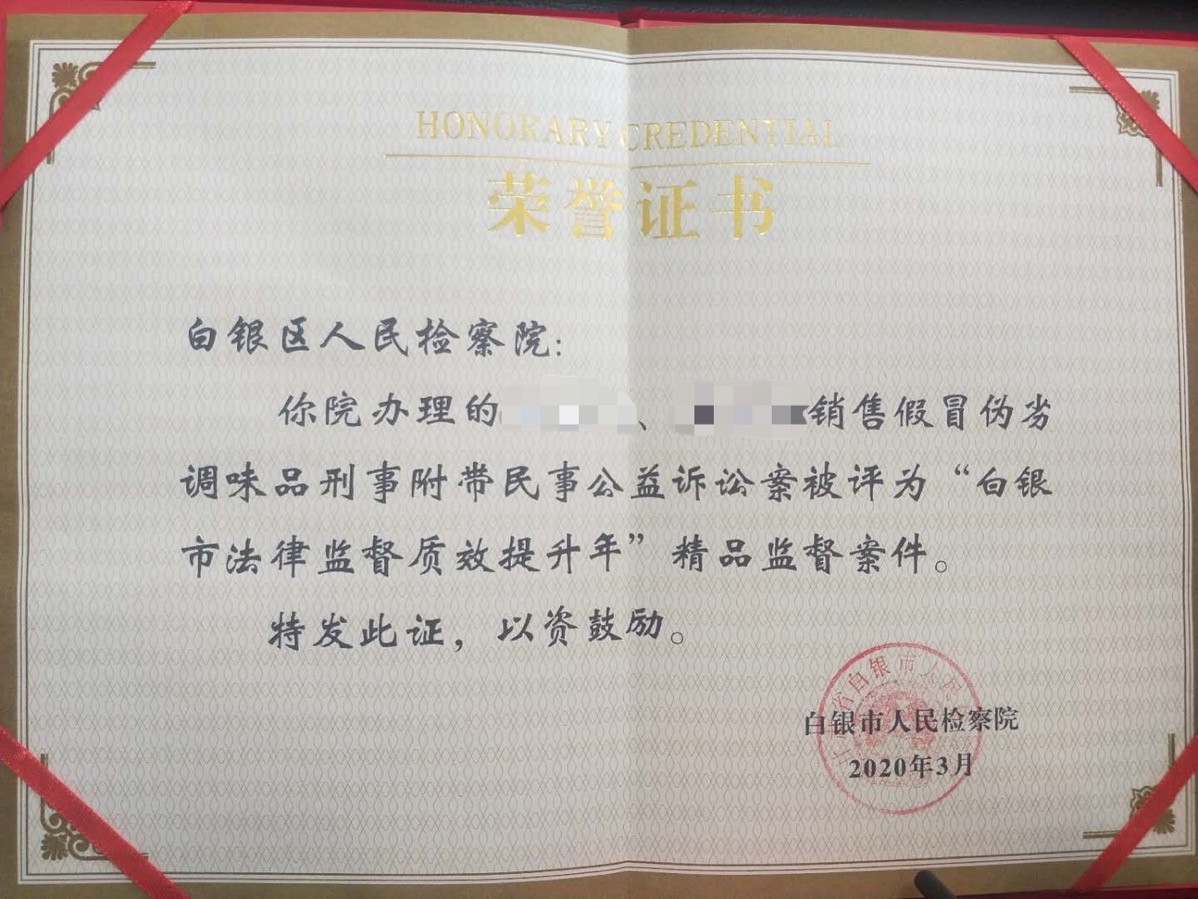 HONORARY CREDENTIAL
荣誉证书
白银区人民检察院:
你院办理的、销售假冒伪劣
调味品刑事附带民事公益诉讼案被评为“白银
市法律监督质效提升年”精品监督案件。
特发此证，以资鼓励。
省白银市人民
白银市人民检察院
2020年3月